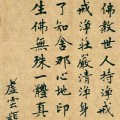 佛教世人持淨戒
戒淨莊嚴清淨身
了知舍那心地印
生佛無殊一體真
虛雲題